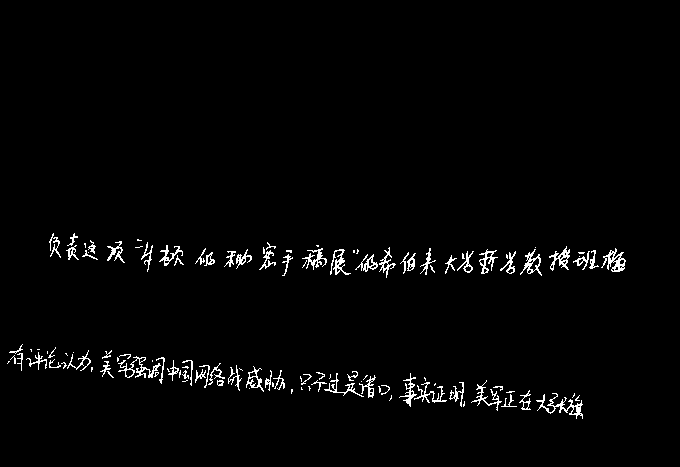 负责这项“牛顿的秘密手稿展”的希伯来大学哲学教授班
有评论认为,美军强调中国网络战威胁,只不过是借口,事实证明,美军正在